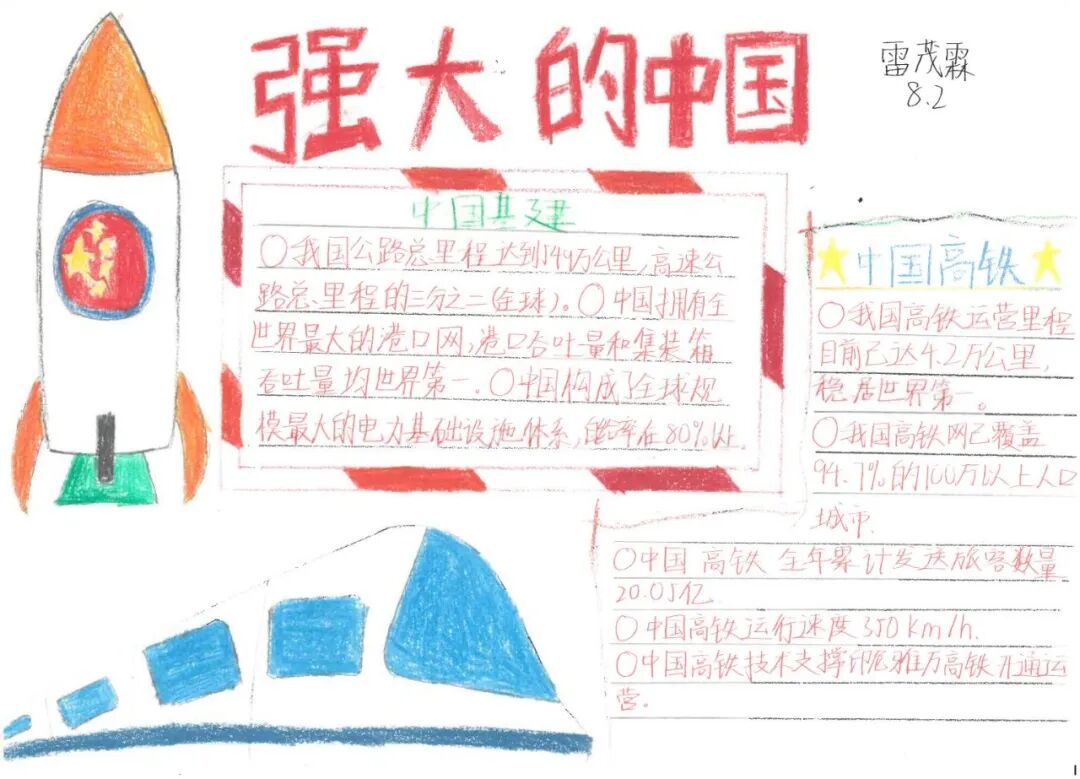 强大的中国
雷茂霖
8.2
中国基建
○我国公路总里程达到544万公里,高速公
路总里程的三分之二(全球)。○中国拥有全
世界最大的港口网,港口吞吐量和集装箱
吞吐量均世界第一。○中国构成了全球规
模最大的电力基础设施体系,率在80%以上。
★中国高铁★
○我国高铁运营里程
目前已达4.2万公里,
稳居世界第一。
○我国高铁网已覆盖
94.7%的100万以上人口
城市.
○中国高铁全年累计发送旅客数量
20.05亿
○中国高铁运行速度350km/h.
○中国高铁技术支撑印尼雅万高铁开通运
营。